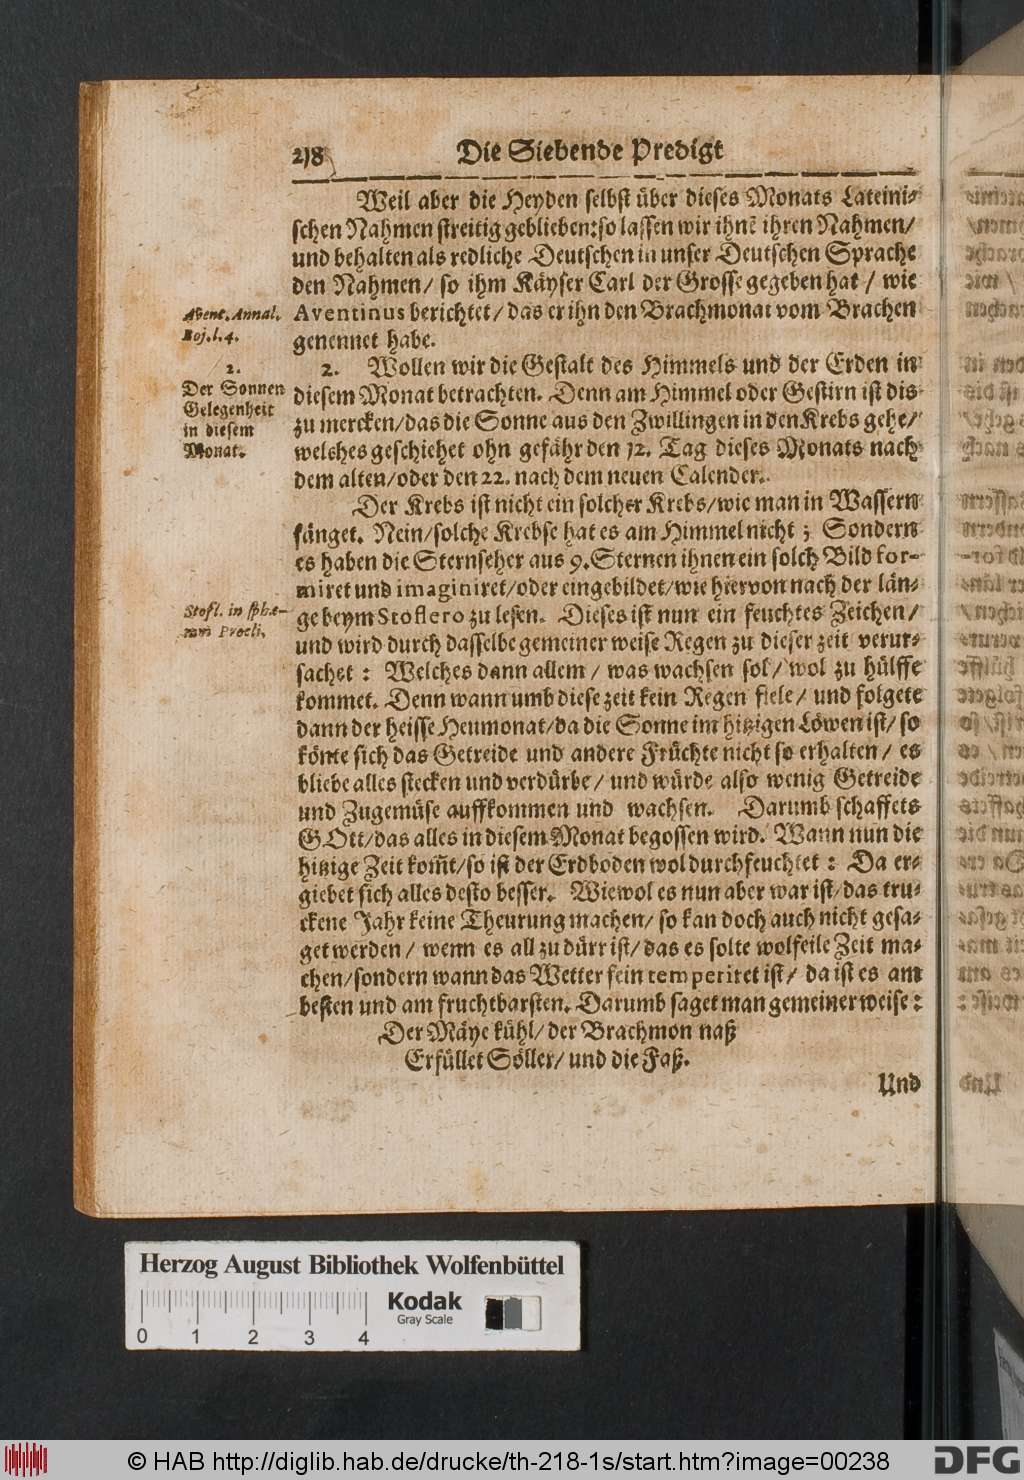 218 Die Siebende Predigt
Weil aber die Heyden selbst über dieses Monats Lateini-
schen Nahmen streitig geblieben: so lassen wir ihnẽ ihren Nahmen/
und behalten als redliche Deutschen in unser Deutschen Sprache
den Nahmen/ so ihm Käyser Carl der Grosse gegeben hat/ wie
Aventinus berichtet/ das er ihn den Brachmonat vom Brachen
genennet habe.
Avent. Annal.
Boj. l. 4.
2. Wollen wir die Gestalt des Himmels und der Erden in
diesem Monat betrachten. Denn am Himmel oder Gestirn ist dis
zu mercken/ das die Sonne aus den Zwillingen in den Krebs gehe/
welches geschiehet ohn gefähr den 12. Tag dieses Monats nach
dem alten/ oder den 22. nach dem neuen Calender.
2.
Der Sonnen
Gelegenheit
in diesem
Monat.
Der Krebs ist nicht ein solcher Krebs/ wie man in Wassern
fänget. Nein/ solche Krebse hat es am Himmel nicht; Sondern
es haben die Sternseher aus 9. Sternen ihnen ein solch Bild for-
miret und imaginiret/ oder eingebildet/ wie hiervon nach der län-
ge beym Stoflero zu lesen. Dieses ist nun ein feuchtes Zeichen/
und wird durch dasselbe gemeiner weise Regen zu dieser zeit verur-
sachet: Welches dann allem/ was wachsen sol/ wol zu hülffe
kommet. Denn wann umb diese zeit kein Regen fiele/ und folgete
dann der heisse Heumonat/ da die Sonne im hitzigen Löwen ist/ so
könte sich das Getreide und andere Früchte nicht so erhalten/ es
bliebe alles stecken und verdürbe/ und würde also wenig Getreide
und Zugemüse auffkommen und wachsen. Darumb schaffets
GOtt/ das alles in diesem Monat begossen wird. Wann nun die
hitzige Zeit kom̃t/ so ist der Erdboden wol durchfeuchtet: Da er-
giebet sich alles desto besser. Wiewol es nun aber war ist/ das tru-
ckene Jahr keine Theurung machen/ so kan doch auch nicht gesa-
get werden/ wenn es all zu dürr ist/ das es solte wolfeile Zeit ma-
chen/ sondern wann das Wetter fein temperiret ist/ da ist es am
besten und am fruchtbarsten. Darumb saget man gemeiner weise:
Stofl. in sphæ-
ram Procli.
Der Mäye kühl/ der Brachmon naß
Erfüllet Söller/ und die Faß.
Und
Herzog August Bibliothek Wolfenbüttel
0 1 2 3 4
Kodak
Gray Scale
© HAB http://diglib.hab.de/drucke/th-218-1s/start.htm?image=00238
DFG